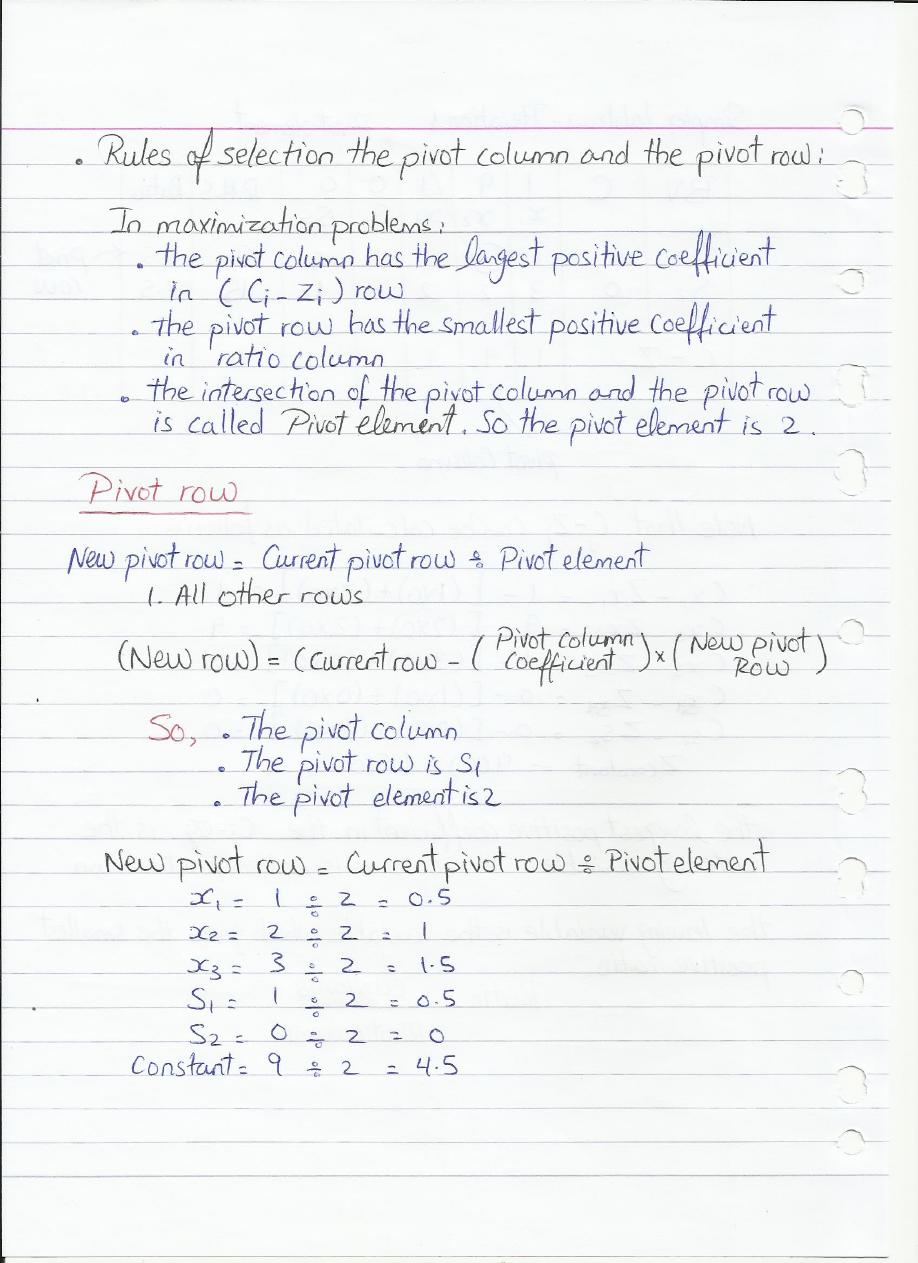 • Rules of selection the pivot column and the pivot row:
In maximization problems:
• the pivot column has the largest positive coefficient
in (Cj - Zj) row
• The pivot row has the smallest positive coefficient
in ratio column
• the intersection of the pivot column and the pivot row
is called Pivot element. So the pivot element is 2.
Pivot row
New pivot row = Current pivot row ÷ Pivot element
1. All other rows
(New row) = (Current row - (Pivot column coefficient) × (New pivot Row)
So, • The pivot column
• The pivot row is S1
• The pivot element is 2
New pivot row = Current pivot row ÷ Pivot element
x1 = 1 ÷ 2 = 0.5
x2 = 2 ÷ 2 = 1
x3 = 3 ÷ 2 = 1.5
S1 = 1 ÷ 2 = 0.5
S2 = 0 ÷ 2 = 0
Constant = 9 ÷ 2 = 4.5